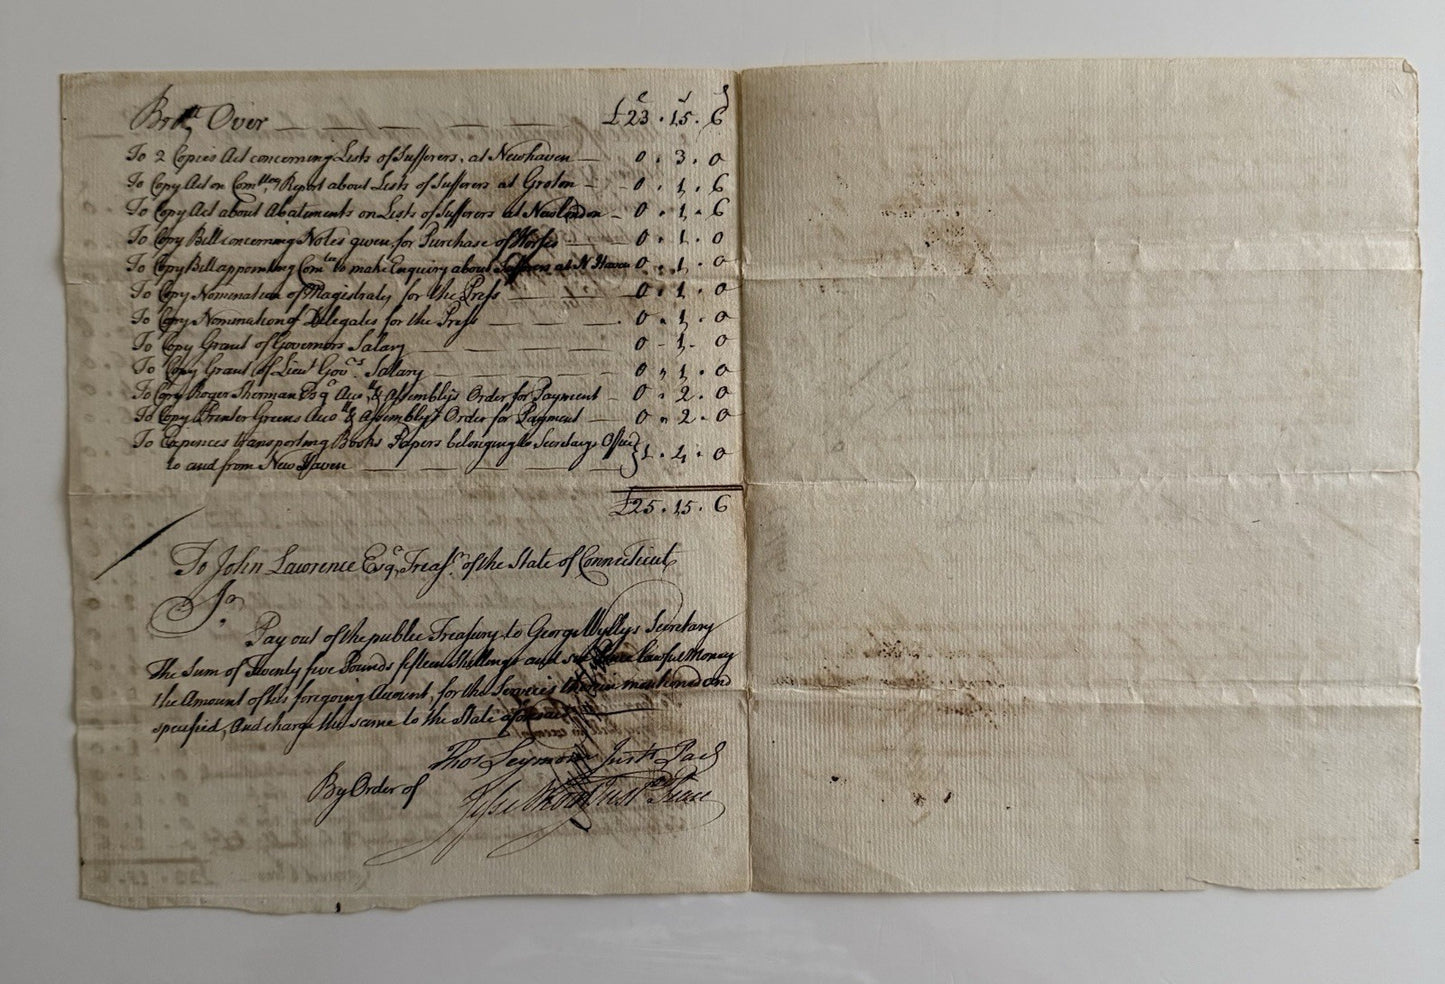 Bro.t Over £23.15.6
To 2 Copies Act concerning Lists of Sufferers, at Newhaven 0.3.0
To Copy Act on Com.ttee Report about Lists of Sufferers at Groton 0.1.6
To Copy Act about Abatements on Lists of Sufferers at New London 0.1.6
To Copy Bill concerning Notes given for Purchase of Horses 0.1.0
To Copy Bill appointing Com.tee to make Enquiry about Sufferers at N Haven 0.1.0
To Copy Nomination of Magistrates for the Press 0.1.0
To Copy Nomination of Delegates for the Press 0.1.0
To Copy Grant of Governors Salary 0.1.0
To Copy Grant of Lieut Gov.rs Salary 0.1.0
To Copy Roger Sherman Esq.r Acco.tt & Assembly's Order for Payment 0.2.0
To Copy Printer Greens Acco.tt & Assembly's Order for Payment 0.2.0
To Expences transporting Books Papers belonging to Secretarys Office
to and from New Haven } 1.4.0
£25.15.6
To John Lawrence Esq.r Treas.r of the State of Connecticut
S.r
Pay out of the public Treasury to George Wyllys Secretary
the Sum of Twenty five Pounds fifteen Shillings and six Pence lawful Money
the Amount of his foregoing Account, for the Services therein mentioned and
specified, And charge the same to the State
Thos Seymour Just. Pac
By Order of
Jesse Root Just. Peace